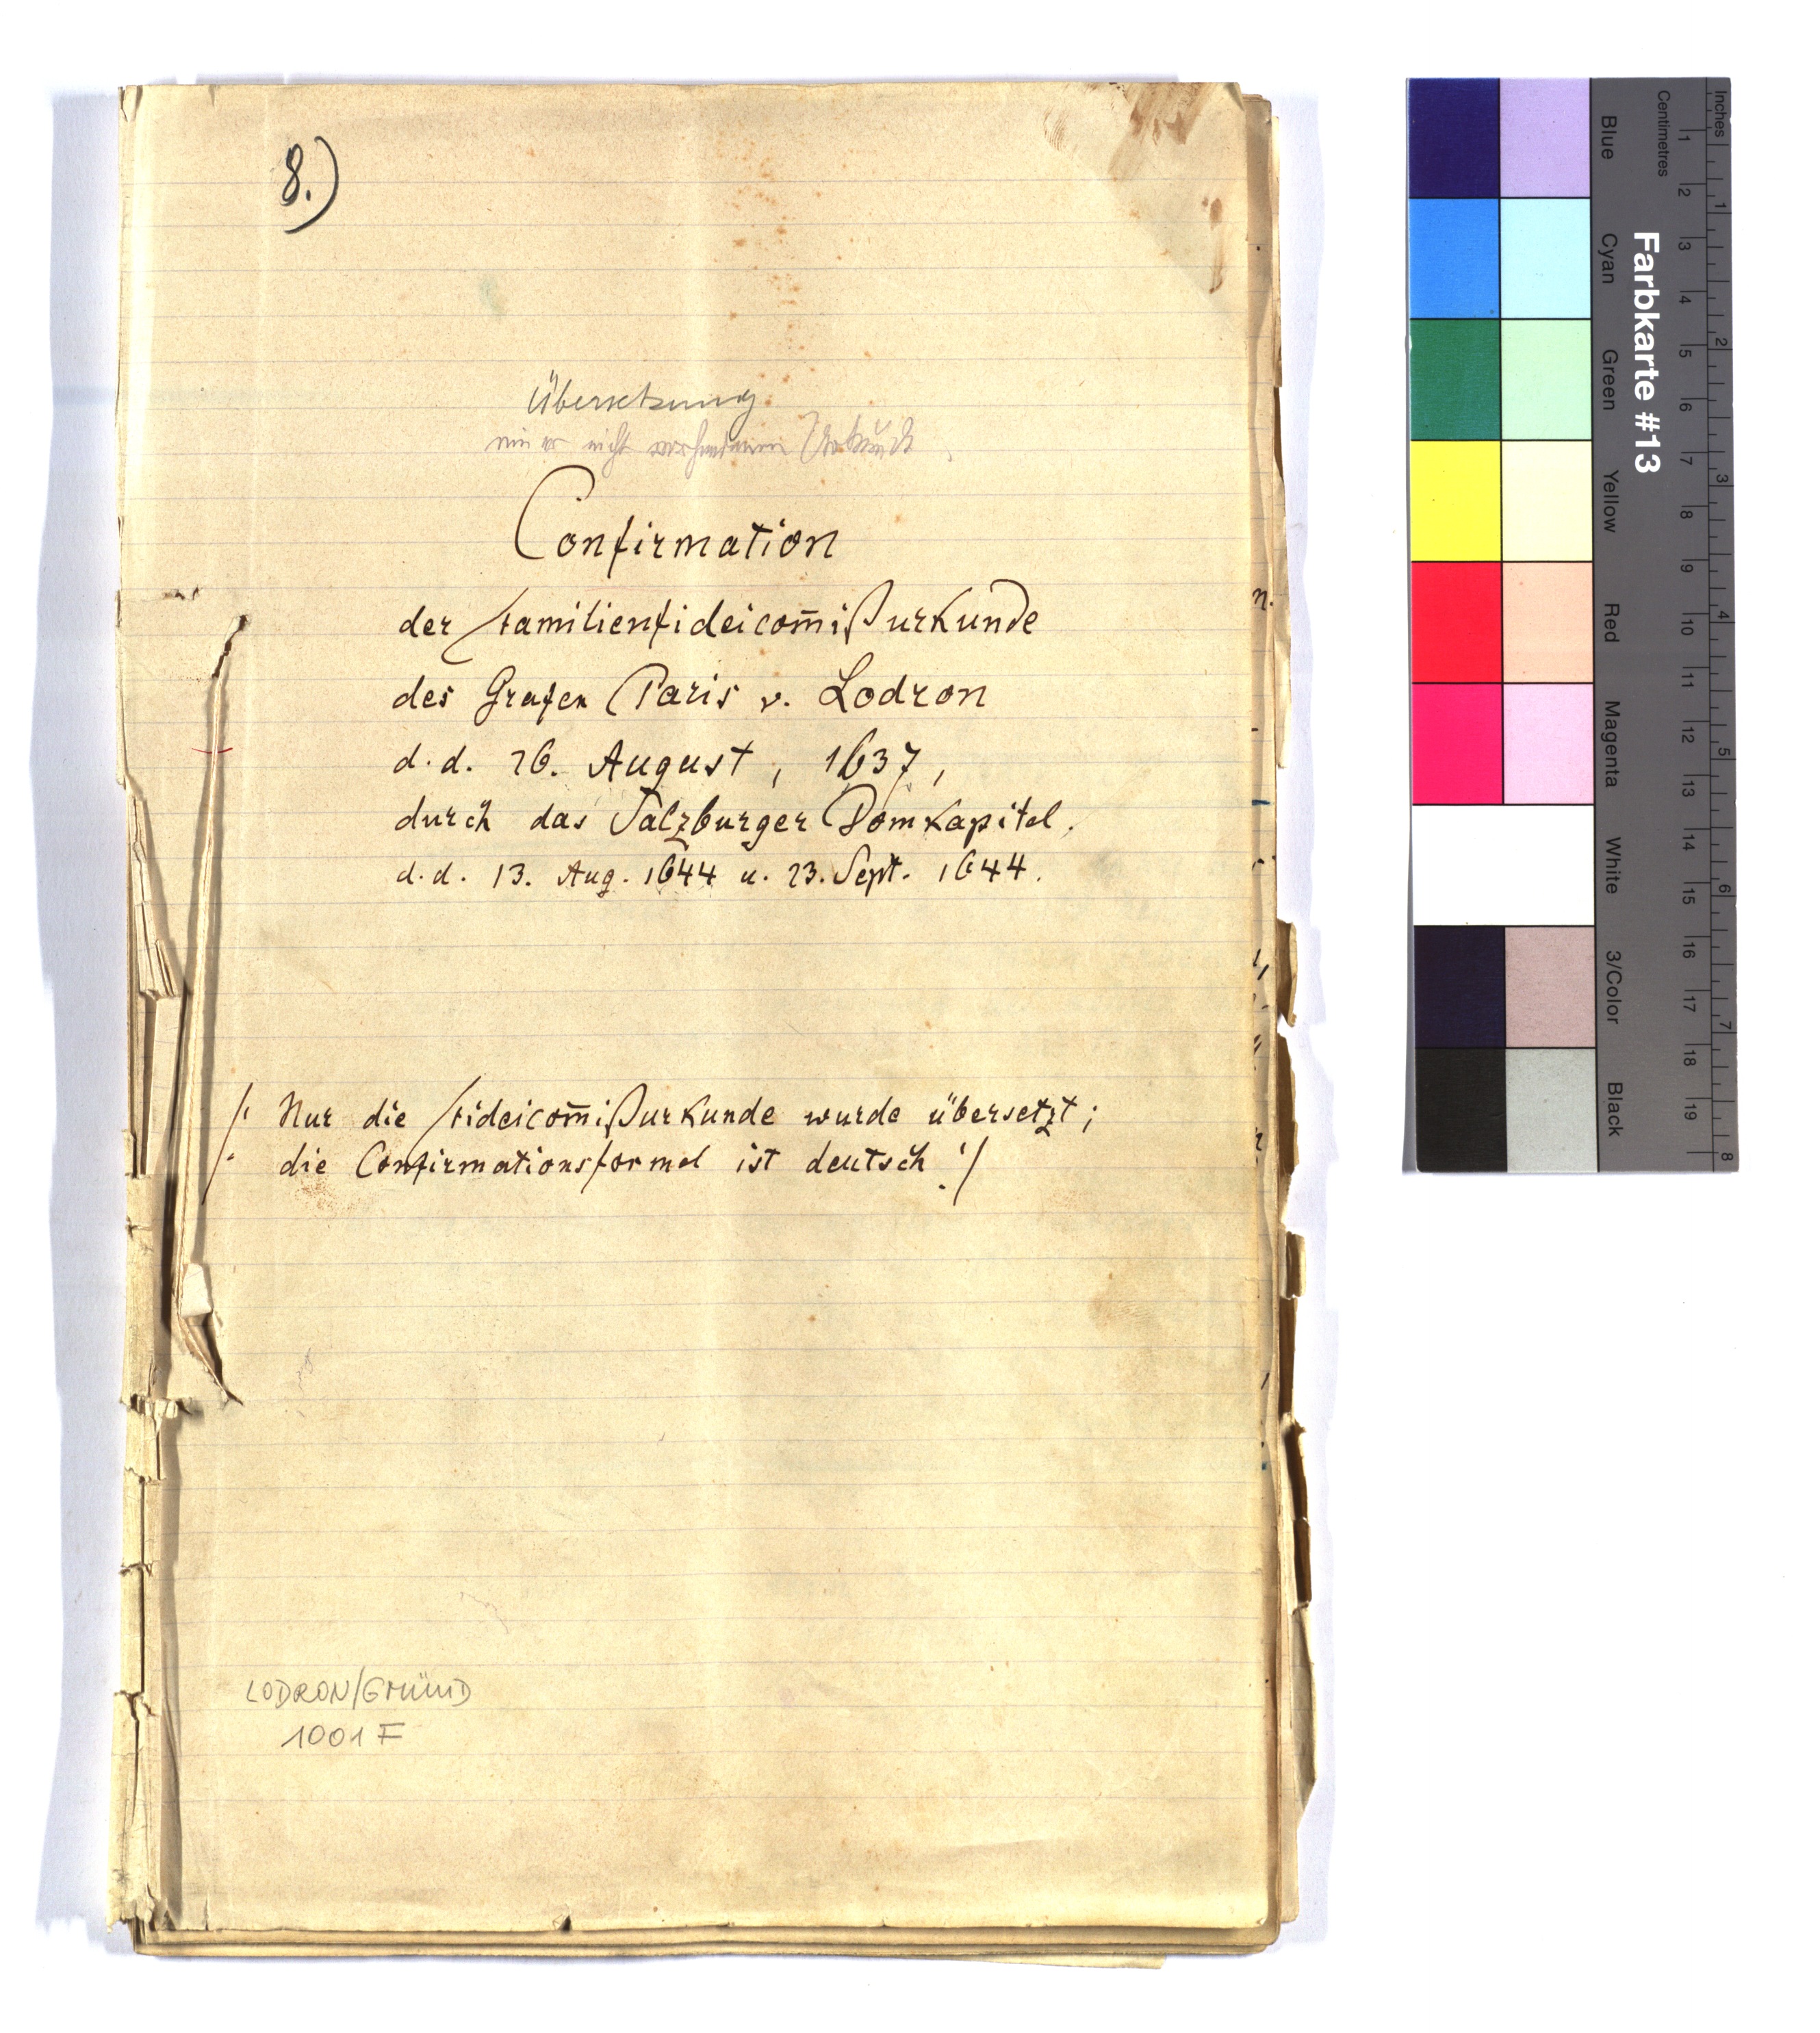 8.)
Übersetzung
einer nicht vorhandenen Urkunde
Confirmation
der Familienfideicom̄ißurkunde
des Grafen Paris v. Lodron
d.d. 26. August, 1637,
durch das Salzburger Domkapitel.
d.d. 13. Aug. 1644 u. 23. Sept. 1644.
/: Nur die Fideicom̄ißurkunde wurde übersetzt;
die Confirmationsformel ist deutsch! :/
LODRON/GMÜND
1001 F
Inches 1 2 3 4 5 6 7 8
Centimetres 1 2 3 4 5 6 7 8 9 10 11 12 13 14 15 16 17 18 19
Farbkarte #13
Blue Cyan Green Yellow Red Magenta White 3/Color Black